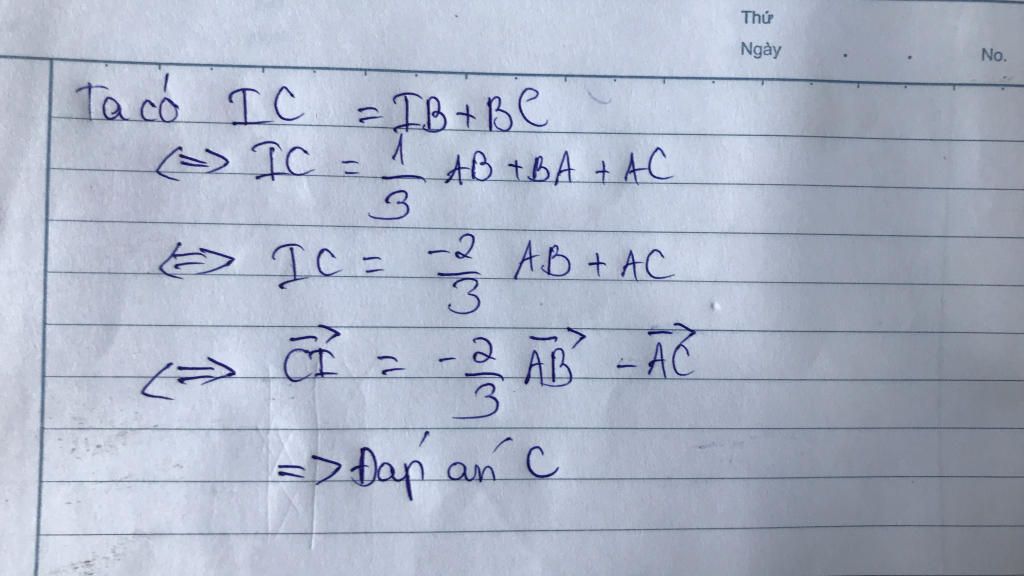 Thứ
Ngày . . No.
Ta có IC = IB + BC
<=> IC = 1/3 AB + BA + AC
<=> IC = -2/3 AB + AC
<=> \overrightarrow{CI} = -2/3 \overrightarrow{AB} - \overrightarrow{AC}
=> Đáp án C